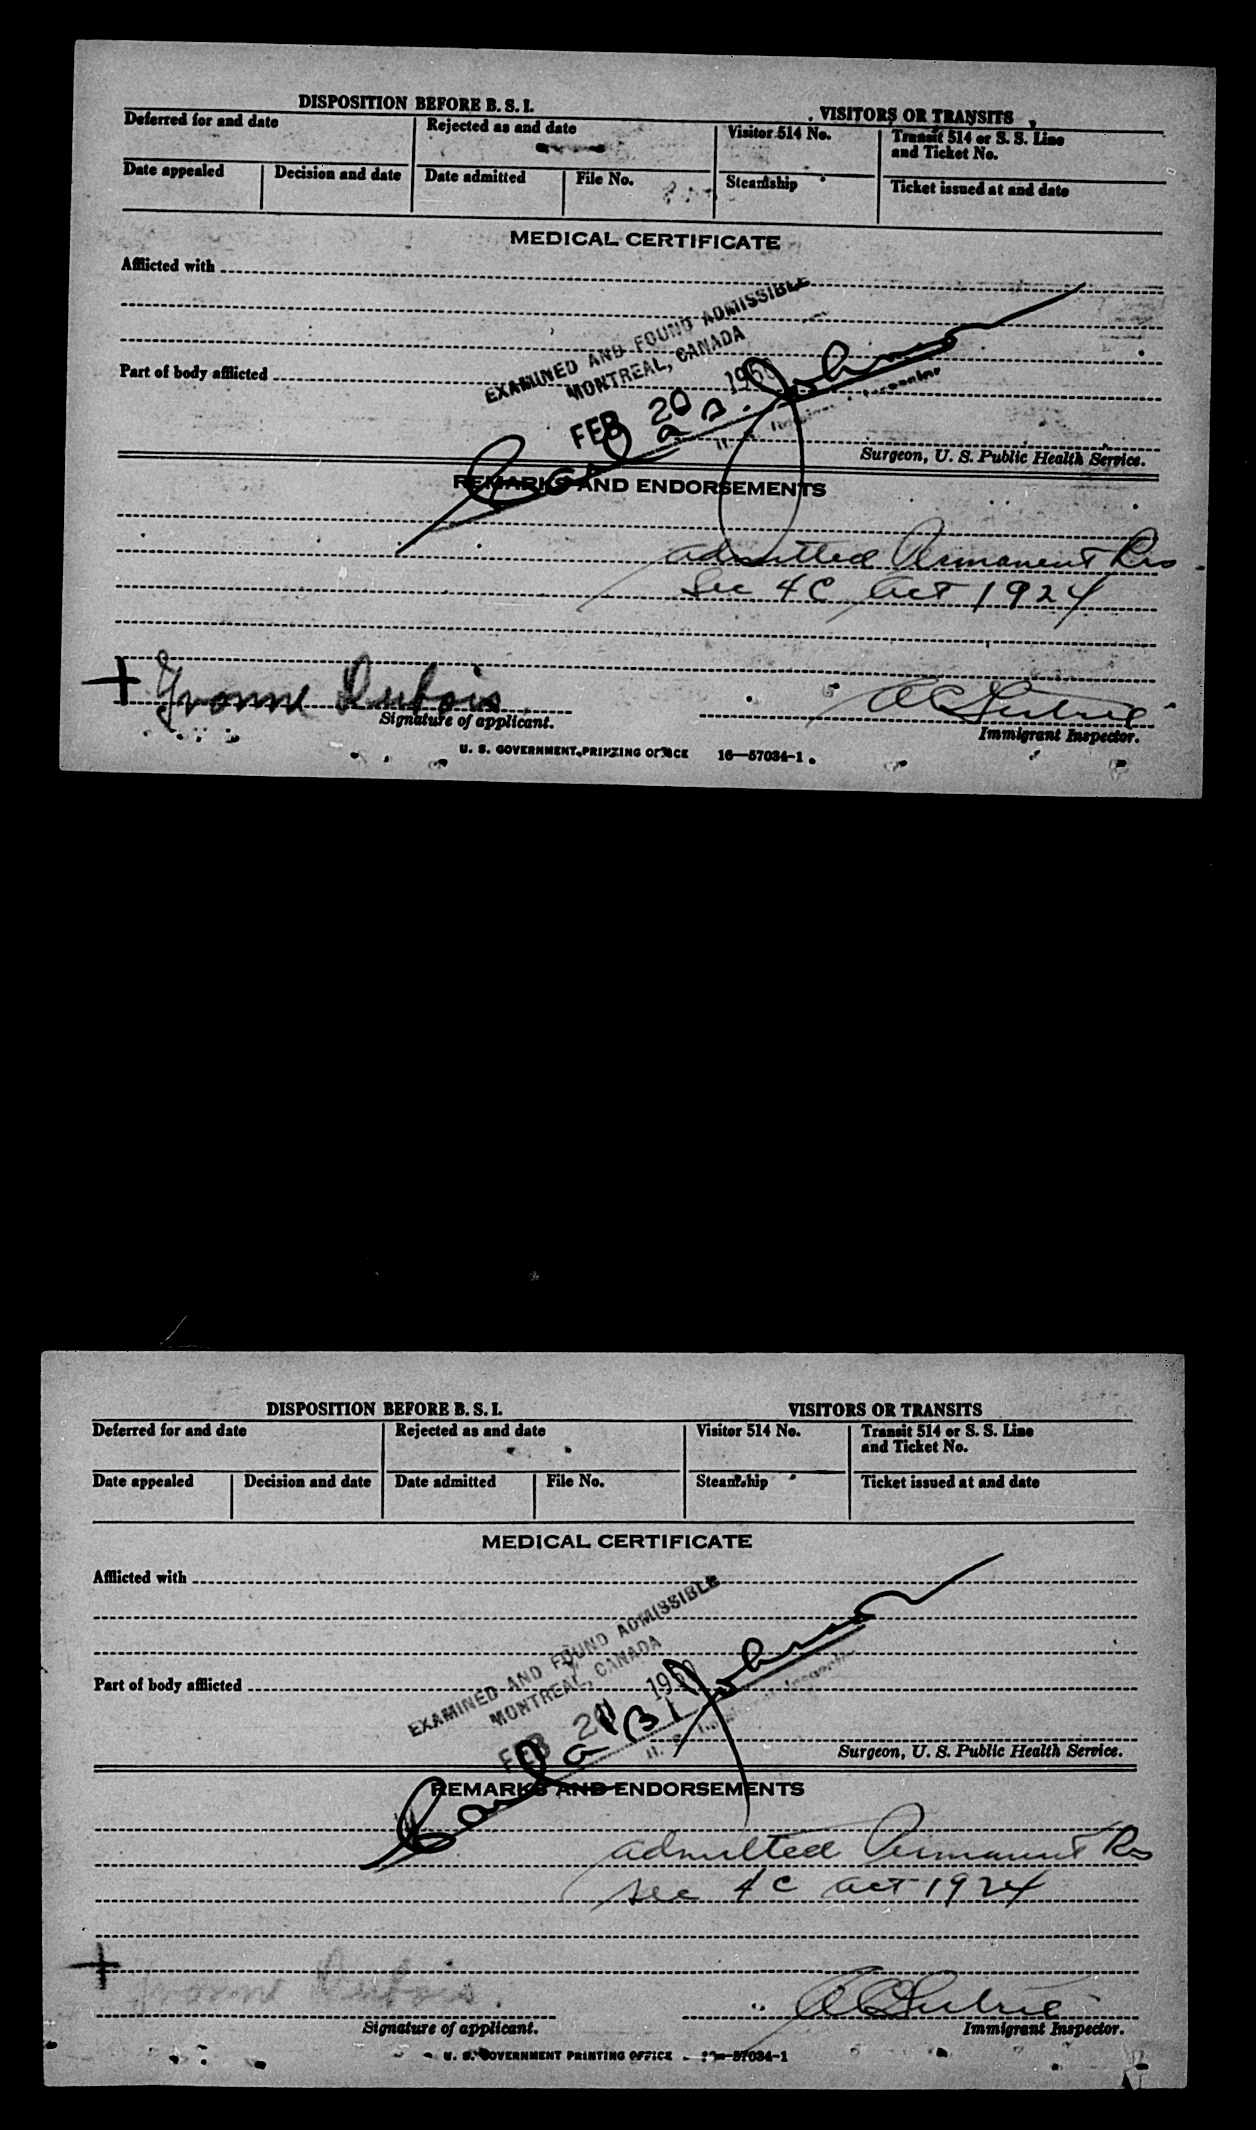 DISPOSITION BEFORE B. S. I.
VISITORS OR TRANSITS
Deferred for and date
Rejected as and date
Visitor 514 No.
Transit 514 or S. S. Line
and Ticket No.
Date appealed
Decision and date
Date admitted
File No.
Steamship
Ticket issued at and date
MEDICAL CERTIFICATE
Afflicted with
Part of body afflicted
EXAMINED AND FOUND ADMISSIBLE
MONTREAL, CANADA
FEB 20 1950
Carl a B. Johnson
Surgeon, U. S. Public Health Service.
REMARKS AND ENDORSEMENTS
admitted Permanent Res
Sec 4C Act 1924
+ Yvonne Dubois
Signature of applicant.
Immigrant Inspector.
U. S. GOVERNMENT PRINTING OFFICE 16—57034-1
DISPOSITION BEFORE B. S. I.
VISITORS OR TRANSITS
Deferred for and date
Rejected as and date
Visitor 514 No.
Transit 514 or S. S. Line
and Ticket No.
Date appealed
Decision and date
Date admitted
File No.
Steamship
Ticket issued at and date
MEDICAL CERTIFICATE
Afflicted with
Part of body afflicted
EXAMINED AND FOUND ADMISSIBLE
MONTREAL, CANADA
FEB 20 1950
Carl a B. Johnson
Surgeon, U. S. Public Health Service.
REMARKS AND ENDORSEMENTS
admitted Permanent Res
sec 4C act 1924
+ Yvonne Dubois.
Signature of applicant.
Immigrant Inspector.
U. S. GOVERNMENT PRINTING OFFICE 16—57034-1